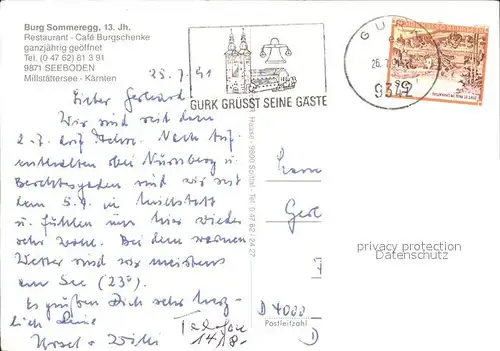 Burg Sommeregg, 13. Jh.
Restaurant - Café Burgschenke
ganzjährig geöffnet
Tel. (0 47 62) 81 3 91
9871 SEEBODEN
Millstättersee - Kärnten
GURK GRÜSST SEINE GÄSTE
9342
25.7.91
Lieber Gerhard
Wir sind seit dem
2.7. auf Achse. Nach Auf-
enthalten bei Nürnberg u.
Berchtesgaden sind wir seit
dem 5.7. in Millstatt
u. fühlen uns hier wieder
sehr wohl. Bei dem warmen
Wetter sind wir meistens
am See (23°).
Es grüßen Dich sehr herz-
lich Deine
Telefon
1418-
9800 Spittal Tel 0 47 62 24 27
D 4000
Postleitzahl
privacy protection
Datenschutz